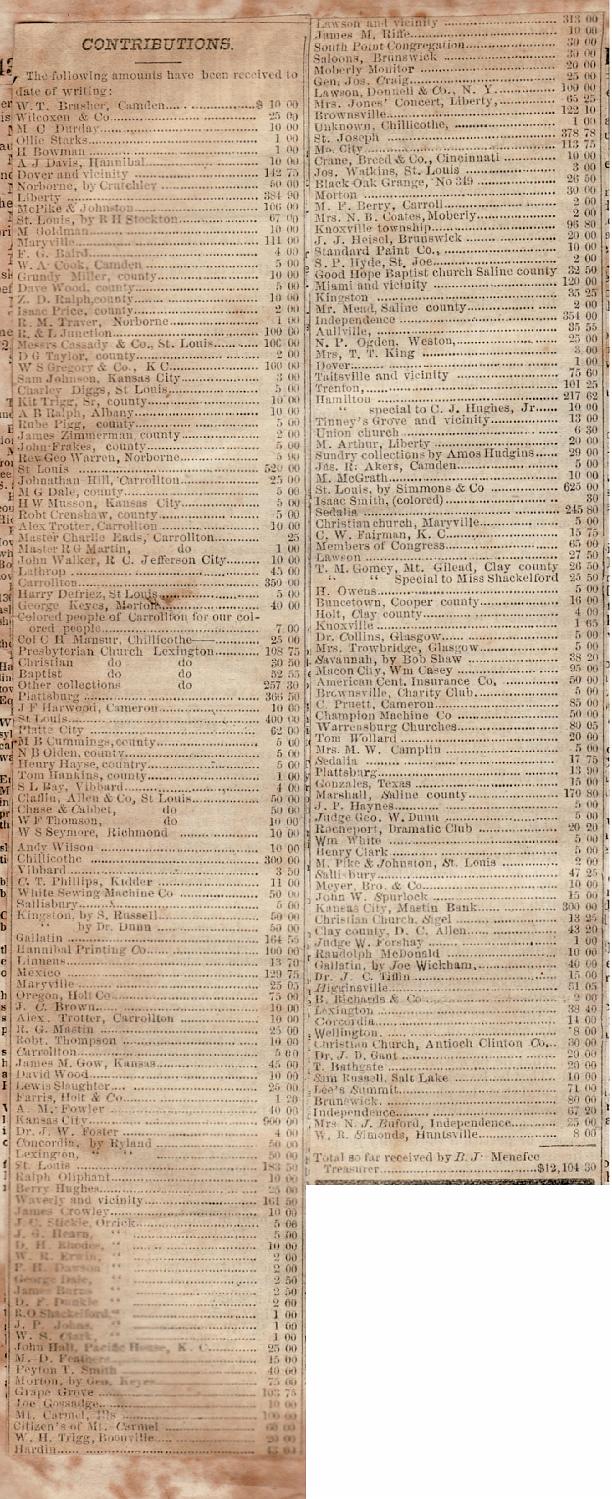 CONTRIBUTIONS.
The following amounts have been received to
date of writing:
W. T. Brasher, Camden $ 10 00
Wilcoxen & Co 25 00
M C Durday 10 00
Ollie Starks 1 00
H Bowman 1 00
A J Davis, Hannibal 10 00
Dover and vicinity 142 75
Norborne, by Crutchley 50 00
Liberty 384 90
McPike & Johnston 106 00
St. Louis, by R H Stockton 67 00
M Goldman 10 00
Maryville 111 00
F. G. Baird 4 00
W. A. Cook, Camden 5 00
Grundy Miller, county 10 00
Dave Wood, county 5 00
Z. D. Ralph, county 10 00
Isaac Price, county 2 00
R. M. Traver, Norborne 1 00
R. & L Junction 100 00
Messrs Cassady & Co., St. Louis 100 00
D G Taylor, county 2 00
W S Gregory & Co., K C 100 00
Sam Johnson, Kansas City 3 00
Charley Diggs, St Louis 5 00
Kit Trigg, Sr, county 10 00
A B Ralph, Albany 10 00
Rube Pigg, county 5 00
James Zimmerman, county 2 00
John Frakes, county 5 00
Rev Geo Warren, Norborne 5 00
St Louis 520 00
Johnathan Hill, Carrollton 25 00
M G Dale, county 5 00
H W Musson, Kansas City 5 00
Robt Crenshaw, county 5 00
Alex Trotter, Carrollton 10 00
Master Charlie Eads, Carrollton 25
Master R G Martin, do 1 00
John Walker, R C. Jefferson City 10 00
Lathrop 45 00
Carrollton 350 00
Harry Defriez, St Louis 5 00
George Keyes, Morton 40 00
Colored people of Carrollton for our col-
ored people 7 00
Col C H Mansur, Chillicothe 25 00
Presbyterian Church Lexington 108 75
Christian do do 30 50
Baptist do do 52 55
Other collections do 257 30
Plattsburg 366 50
J F Harwood, Cameron 10 00
St Louis 400 00
Platte City 62 00
M B Cummings, county 5 00
N B Olden, county 5 00
Henry Hayse, county 5 00
Tom Hankins, county 1 00
S L Bay, Vibbard 4 00
Claflin, Allen & Co, St Louis 50 00
Chase & Cabbet, do 50 00
W F Thomson, do 10 00
W S Seymore, Richmond 10 00
Andy Wilson 10 00
Chillicothe 300 00
Vibbard 3 50
C. T. Phillips, Kidder 11 00
White Sewing Machine Co 50 00
Sallisbury 5 00
Kingston, by S. Russell 50 00
" by Dr. Dunn 50 00
Gallatin 164 55
Hannibal Printing Co 100 00
Linneus 13 70
Mexico 129 75
Maryville 25 05
Oregon, Holt Co 75 00
J. C. Brown 10 00
Alex. Trotter, Carrollton 10 00
R. G. Mastin 25 00
Robt. Thompson 10 00
Carrollton 5 00
James M. Gow, Kansas 45 00
David Wood 10 00
Lewis Slaughter 25 00
Farris, Holt & Co 1 20
A. M. Fowler 40 00
Kansas City 900 00
Dr. J. W. Foster 4 00
Concordia, by Ryland 50 00
Lexington, " " 50 00
St. Louis 183 50
Ralph Oliphant 10 00
Berry Hughes 25 00
Waverly and vicinity 161 50
James Crowley 10 00
J. C. Stickle, Orrick 5 00
J. G. Hearn, " 5 50
D. H. Rhodes, " 10 00
W. R. Erwin, " 2 00
P. H. Dawson " 2 00
George Dale, " 2 50
James Burns " 2 50
D. F. Dunkle " 2 60
R. O Shackelford, " 1 00
J. P. Johns, " 1 00
W. S. Clark, " 1 00
John Hall, Pacific House, K. C 25 00
M. D. Feathers 15 00
Peyton T. Smith 40 00
Morton, by Geo. Keyes 75 00
Grape Grove 103 75
Joe Gossadge 10 00
Mt. Carmel, Ills 100 00
Citizen's of Mt. Carmel 60 00
W. H. Trigg, Boonville 20 00
Hardin
Lawson and vicinity 313 00
James M. Riffe 10 00
South Point Congregation 30 00
Saloons, Brunswick 30 00
Moberly Monitor 20 00
Gen. Jos. Craig 25 00
Lawson, Donnell & Co., N. Y. 100 00
Mrs. Jones' Concert, Liberty, 65 25
Brownsville 122 10
Unknown, Chillicothe, 1 00
St. Joseph 378 78
Mo. City 113 75
Crane, Breed & Co., Cincinnati 10 00
Jos. Watkins, St. Louis 3 00
Black Oak Grange, No 349 26 50
Morton 30 00
M. P. Berry, Carroll 2 00
Mrs. N. B. Coates, Moberly 2 00
Knoxville township 96 80
J. J. Heisel, Brunswick 20 00
Standard Paint Co., 10 00
S. P. Hyde, St, Joe 2 00
Good Hope Baptist church Saline county 32 50
Miami and vicinity 120 00
Kingston 35 25
Mr. Mead, Saline county 2 00
Independence 354 00
Aullville, 35 55
N. P. Ogden, Weston, 25 00
Mrs, T. T. King 3 00
Dover 1 00
Taitsville and vicinity 75 60
Trenton, 101 25
Hamilton 217 62
" special to C. J. Hughes, Jr 10 00
Tinney's Grove and vicinity 13 00
Union church 6 30
M. Arthur, Liberty 20 00
Sundry collections by Amos Hudgins 29 00
Jas. R. Akers, Camden 5 00
M. McGrath 10 00
St. Louis, by Simmons & Co 625 00
Isaac Smith, (colored) 30
Sedalia 245 80
Christian church, Maryville 5 00
C. W. Fairman, K. C 15 75
Members of Congress 65 00
Lawson 27 50
T. M. Gomey, Mt. Gilead, Clay county 26 50
" " Special to Miss Shackelford 25 50
H. Owens 5 00
Buncetown, Cooper county 16 00
Holt, Clay county 4 00
Knoxville 1 65
Dr. Collins, Glasgow 5 00
Mrs. Trowbridge, Glasgow 5 00
Savannah, by Bob Shaw 38 20
Macon City, Wm Casey 95 00
American Cent. Insurance Co, 50 00
Brownsville, Charity Club 5 00
C. Pruett, Cameron 85 00
Champion Machine Co 50 00
Warrensburg Churches 80 05
Tom Wollard 20 00
Mrs. M. W. Camplin 5 00
Sedalia 17 75
Plattsburg 13 90
Gonzales, Texas 15 00
Marshall, Saline county 170 80
J. P. Haynes 5 00
Judge Geo. W. Dunn 5 00
Rocheport, Dramatic Club 20 20
Wm White 5 00
Henry Clark 5 00
M. Pike & Johnston, St. Louis 2 00
Sallisbury 47 25
Meyer, Bro. & Co 10 00
John W. Spurlock 15 00
Kansas City, Mastin Bank 300 00
Christian Church, Sigel 13 25
Clay county, D. C. Allen 43 20
Judge W. Forshay 1 00
Randolph McDonald 10 00
Gallatin, by Joe Wickham, 40 00
Dr. J. C. Tiffin 15 00
Higginsville 51 05
B. Richards & Co 2 00
Lexington 38 40
Corcordia 14 00
Wellington 8 00
Christian Church, Antioch Clinton Co 30 00
Dr. J. D. Gant 20 00
T. Bathgate 20 00
Sam Russell, Salt Lake 10 00
Lee's Summit 71 00
Brunswick 80 00
Independence 67 20
Mrs N. J. Buford, Independence 25 00
W. R. Simonds, Huntsville 8 00
Total so far received by B. J. Menefee
Treasurer $12,104 30